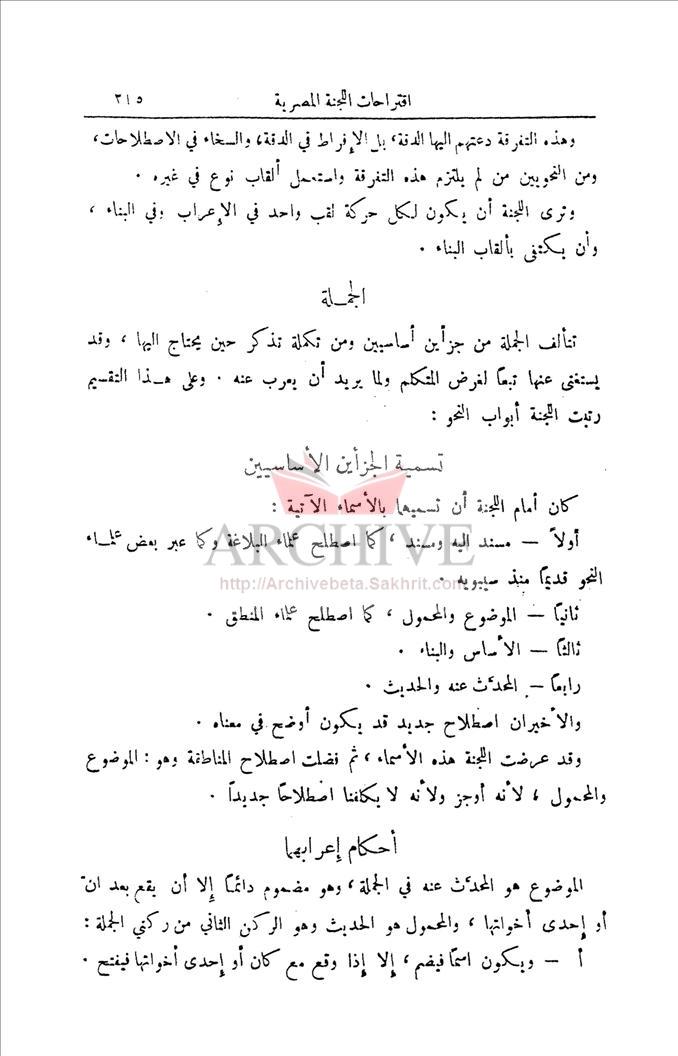 اقتراحات اللجنة المصرية ٣١٥
وهذه التفرقة دعتهم اليها الدقة، بل الإفراط في الدقة، والسخاء في الاصطلاحات،
ومن النحويين من لم يلتزم هذه التفرقة واستعمل ألقاب نوع في غيره .
وترى اللجنة أن يكون لكل حركة لقب واحد في الإعراب وفي البناء ،
وأن يكتفى بألقاب البناء .
الجملة
تتألف الجملة من جزأين أساسيين ومن تكملة تذكر حين يحتاج اليها ، وقد
يستغنى عنها تبعًا لغرض المتكلم ولما يريد أن يعرب عنه . وعلى هذا التقسيم
رتبت اللجنة أبواب النحو :
تسمية الجزأين الأساسيين
كان أمام اللجنة أن تسميهما بالأسماء الآتية :
أولاً — مسند اليه ومسند ، كما اصطلح علماء البلاغة وكما عبر بعض علماء
النحو قديمًا منذ سيبويه .
ثانيًا — الموضوع والمحمول ، كما اصطلح علماء المنطق .
ثالثًا — الأساس والبناء .
رابعًا — المحدَّث عنه والحديث .
والأخيران اصطلاح جديد قد يكون أوضح في معناه .
وقد عرضت اللجنة هذه الأسماء ، ثم فضلت اصطلاح المناطقة وهو : الموضوع
والمحمول ، لأنه أوجز ولأنه لا يكلفنا اصطلاحًا جديداً .
أحكام إعرابهما
الموضوع هو المحدَّث عنه في الجملة ، وهو مضموم دائمًا إلا أن يقع بعد انّ
أو إحدى أخواتها ، والمحمول هو الحديث وهو الركن الثاني من ركني الجملة :
أ — ويكون اسمًا فيضم ، إلا إذا وقع مع كان أو إحدى أخواتها فيفتح .
ARCHIVE
http://Archivebeta.Sakhrit.com